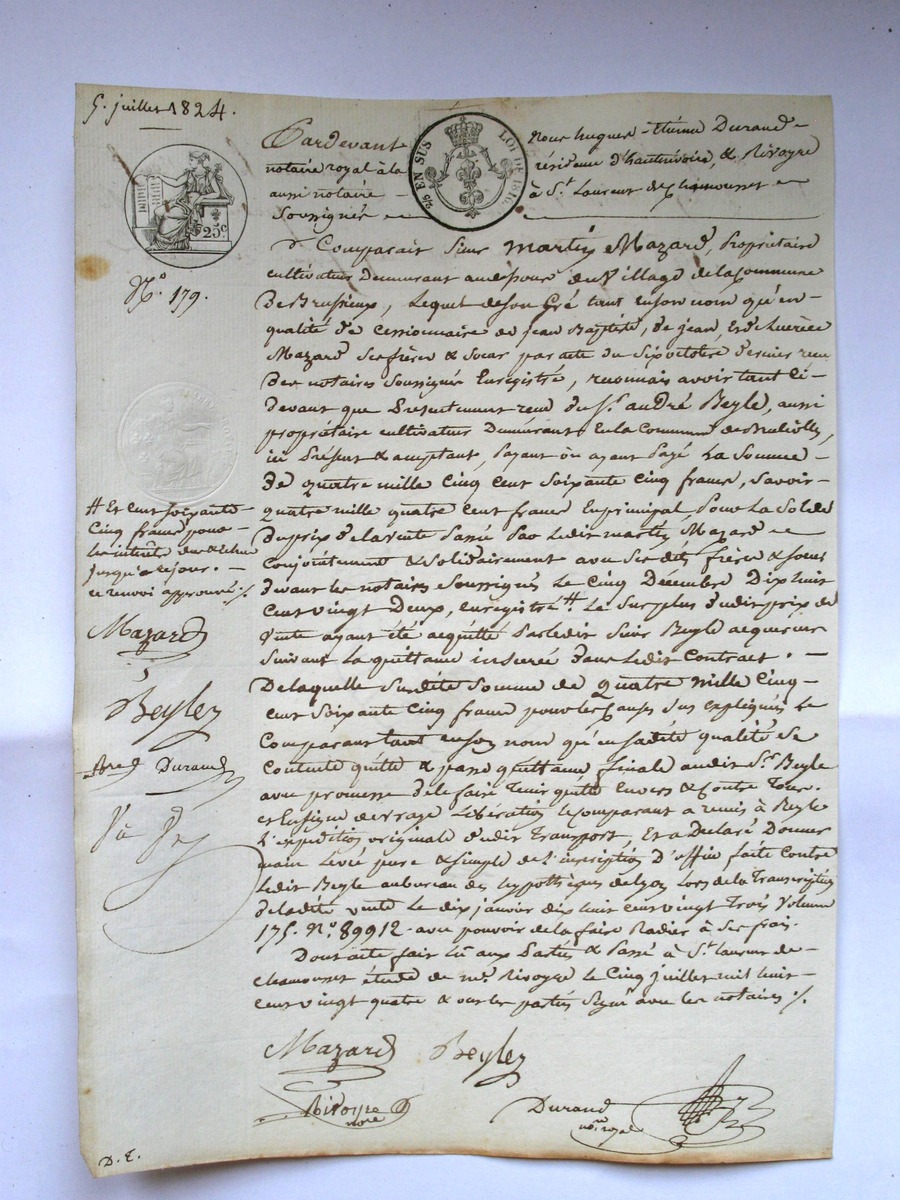 5. juillet 1824.
Pardevant Nous hugues-Etienne Durand
notaire royal à la résidence d'hauterivoire, & Rivoyre
aussi notaire à St. Laurent de Chamousset
Soussignés
2/5 EN SUS LOI DE 1816
25c.
N.o 179.
Comparait Sieur Martin Mazard, Propriétaire
cultivateur Demeurant au village de la Commune
De Brussieux, Lequel de son Gré tant en son nom qu'en
qualité de Cessionnaire de jean Baptiste, de jean, et de
Mazard Ses frères & Sœur par acte du Six octobre dernier recu
Des notaires Soussignés Enregistré, reconnait avoir tant ci-
devant que Présentement recu du Sr. andré Beyle, aussi
propriétaire cultivateur Demeurant En la Commune de
ici Présent & acceptant, Payant ou ayant Payé La Somme
De quatre mille Cinq Cent Soixante Cinq francs, Savoir
quatre mille quatre Cent francs En principal Pour La Solde
Du prix de la vente Passée Par Ledit martin Mazard
Conjointement & Solidairement avec Ses dits frères & Sœur
devant les notaires Soussignés Le Cinq Décembre Dix huit
Cent vingt Deux, enregistré # Le Surplus dudit prix de
Vente ayant été acquitté Par ledit Sieur Beyle acquereur
Suivant La quittance insérée Dans Ledit Contract.
# Et Cent Soixante
Cinq francs pour
les intérêts
jusqu'à ce jour.
ce renvoi approuvé ./.
Mazard
Beyle
Durand
De laquelle Susdite Somme de quatre mille Cinq
Cent Soixante Cinq francs pour les Causes Sus expliquées Le
Comparant tant en son nom qu'en sa dite qualité Se
Contente quitte & passe quittance finale audit Sr. Beyle
avec promesse De le faire Tenir quitte Envers & Contre Tous.
et En signe de vraye Libération le comparant a remis à Beyle
L'expédition originale dudit Transport, Et a Déclaré Donner
main Levée pure & Simple de L'inscription D'office faite Contre
Ledit Beyle au bureau des hypothèques de Lyon Lors de la Transcription
de la dite vente Le dix janvier dix huit cent vingt Trois Volume
175. No. 89912. avec pouvoir de la faire Radier à Ses frais.
Dont acte fait Lû aux Parties & Passé à St. Laurent de
Chamousset étude de me. Rivoyre le Cinq juillet mil huit
cent vingt quatre & ont les parties Signé avec les notaires ./.
Mazard Beyle
Rivoyre Durand
nore no.re royal
D. E.